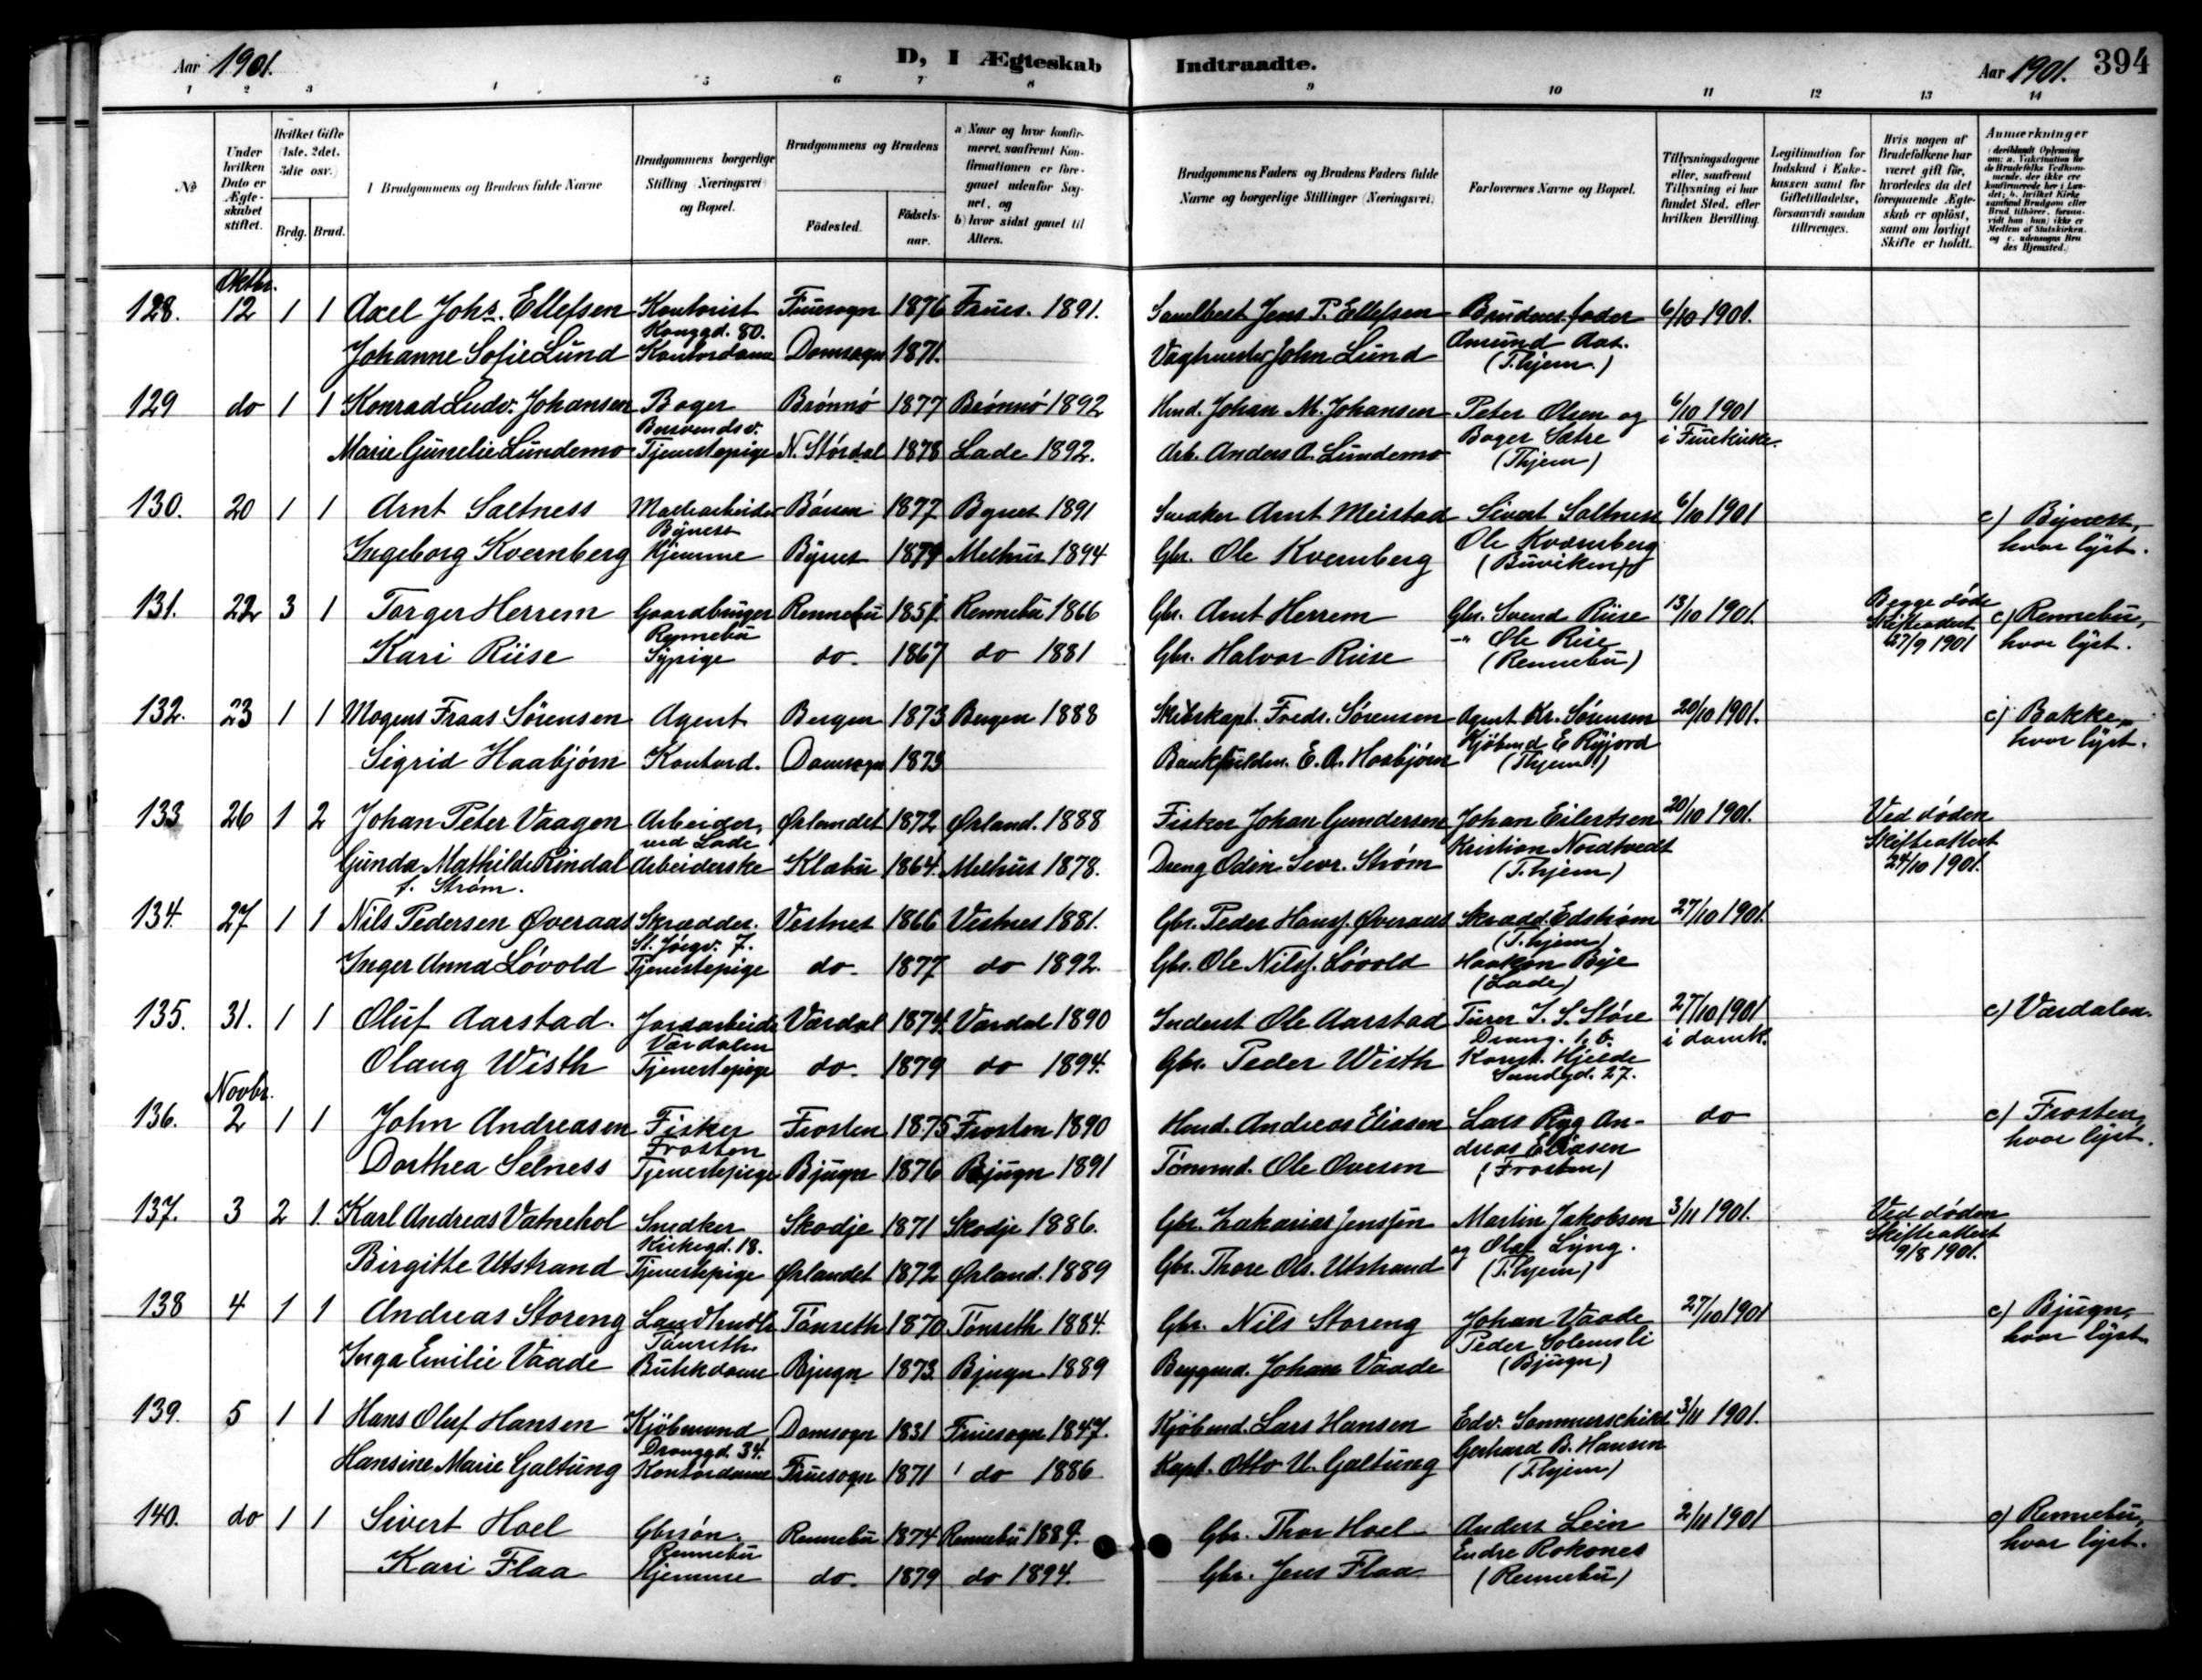 Aar 1901.
D, I Ægteskab
Indtraadte.
Aar 1901. 394
1 2 3 4 5 6 7 8 9 10 11 12 13 14
No
Under hvilken Dato er Ægteskabet stiftet.
Hvilket Gifte (1ste, 2det, 3die osv.)
Brdg. Brud.
Brudgommens og Brudens fulde Navne
Brudgommens borgerlige Stilling (Næringsvei) og Bopæl.
Brudgommens og Brudens
Födested.
Födsels-aar.
a) Naar og hvor konfirmeret, saafremt Konfirmationen er foregaaet udenfor Sognet, og
b) hvor sidst gaaet til Alters.
Brudgommens Faders og Brudens Faders fulde Navne og borgerlige Stillinger (Næringsvei)
Forlovernes Navne og Bopæl.
Tillysningsdagene eller, saafremt Tillysning ei har fundet Sted, efter hvilken Bevilling.
Legitimation for Indskud i Enkekassen samt for Giftetilladelse, forsaavidt saadan tiltrænges.
Hvis nogen af Brudefolkene har været gift för, hvorledes da det foregaaende Ægteskab er oplöst, samt om lovligt Skifte er holdt.
Anmærkninger
Oktbr.
128. 12 1 1 Axel Johs. Ellefsen Kontorist Fruesogn 1876 Frues. 1891. Jens P. Ellefsen Brudens fader 6/10 1901.
Konggd. 80.
Johanne Sofie Lund Kontordame Domsogn 1871. John Lund Amund Aas.
(T.hjem)
129 do 1 1 Konrad Ludv. Johansen Bager Brönnö 1877 Brönnö 1892 Hmd. Johan M. Johansen Peter Olsen og 6/10 1901
Marie Gunelie Lundemo Tjenestepige N. Stördal 1878 Lade 1892. Arb. Anders A. Lundemo Bager Sætre i Fruekirke.
(Thjem)
130. 20 1 1 Arnt Saltness Börsen 1877 Bynes 1891 Arnt Meistad Sivert Saltness 6/10 1901 c) Byness,
Byness
Ingeborg Kvernberg Hjemme Bynes 1879 Melhus 1894 Gbr. Ole Kvernberg Ole Kvernberg hvor lyst.
(Buviken)
131. 22 3 1 Torger Herrem Gaardbruger Rennebu 1851 Rennebu 1866 Gbr. Arnt Herrem Gbr. Svend Riise 13/10 1901. Begge døde c) Rennebu,
Rennebu
Kari Riise Sypige do 1867 do 1881 Gbr. Halvor Riise -"- Ole Riise Skifteattest 27/9 1901 hvor lyst.
(Rennebu)
132. 23 1 1 Mogens Fraas Sörensen Agent Bergen 1873 Bergen 1888 Skibskapt. Fredr. Sørensen Agent Kr. Sørensen 20/10 1901. c) Bakke,
Sigrid Haabjørn Kontord. Domsogn 1873 E. A. Haabjørn Kjöbmd E Ryjord hvor lyst.
(Thjem)
133 26 1 2 Johan Peter Vaagen Arbeider, Ørlandet 1872 Ørland. 1888 Fisker Johan Gundersen Johan Eilertsen 20/10 1901. Ved døden
ved Lade
Gunda Mathilde Rindal Arbeiderske Klæbu 1864. Melhus 1878. Dreng Odin Sevr. Strøm Kristian Nordtvedt Skifteattest
f. Strøm. (T.hjem) 24/10 1901.
134. 27 1 1 Nils Pedersen Øveraas Skrædder. Vestnes 1866 Vestnes 1881. Gbr. Peder Hansj. Øveraas Skrædd. Edstrøm 27/10 1901.
St. Jörgv. 7. (T.hjem)
Inger Anna Lövold Tjenestepige do 1877 do 1892. Gbr. Ole Nilsj. Lövold Haakon Bye
(Lade)
135. 31. 1 1 Oluf Aarstad. Jordarbeider Værdal 1874. Værdal 1890 Inderst Ole Aarstad Turer I. S. Störe 27/10 1901 c) Værdalen.
Værdalen
Olaug Wisth Tjenestepige do 1879 do 1894. Gbr. Peder Wisth Konst. Hjelde i domk.
Sandgd. 27.
Novbr.
136. 2 1 1 John Andreasen Fisker Frosten 1875 Frosten 1890 Hmd. Andreas Eliasen Lars Ryg An- do c) Frosten,
Frosten
Dorthea Selness Tjenestepige Bjugn 1876 Bjugn 1891 Tömmd. Ole Ovesen dreas Eliasen hvor lyst.
(Frosten)
137. 3 2 1 Karl Andreas Vatnehol Snedker Skodje 1871 Skodje 1886. Gbr. Zakarias Jensson Martin Jakobsen 3/11 1901. Ved døden
Kirkegd. 18.
Birgitte Utstrand Tjenestepige Ørlandet 1872 Ørland. 1889 Gbr. Thore Ols. Utstrand og Olaf Lyng. Skifteattest
(T.hjem) 9/8 1901.
138 4 1 1 Andreas Storeng Landhndlr Tönseth 1870 Tönseth 1884. Gbr. Nils Storeng Johan Vaade 27/10 1901 c) Bjugn,
Tönseth
Inga Emilie Vaade Butikdame Bjugn 1873 Bjugn 1889 Byggmd. Johan Vaade Peder Solemsli hvor lyst
(Bjugn)
139. 5 1 1 Hans Oluf Hansen Kjöbmand Domsogn 1831 Fruesogn 1847. Kjöbmd. Lars Hansen Edv. Sommerschild 3/11 1901.
Dronggd. 34.
Hansine Marie Galtung Kontordame Fruesogn 1871 do 1886 Kapt. Otto U. Galtung Gerhard B. Hansen
(T.hjem)
140. do 1 1 Sivert Hoel Gbrsön. Rennebu 1874 Rennebu 1889. Gbr. Thor Hoel Anders Lein 2/11 1901 c) Rennebu,
Rennebu
Kari Flaa Hjemme do. 1879 do 1894. Gbr. Jens Flaa Endre Rokones hvor lyst.
(Rennebu)